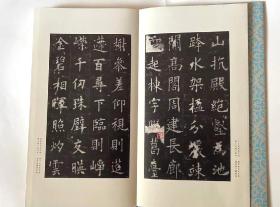 山抗殿絕壑為池
跨水架楹分巖竦
闕高閣周建長廊
起棟宇膠葛臺
榭參差仰視則迢
遰百尋下臨則崢
嶸千仞珠璧交暎
金碧相暉照灼雲